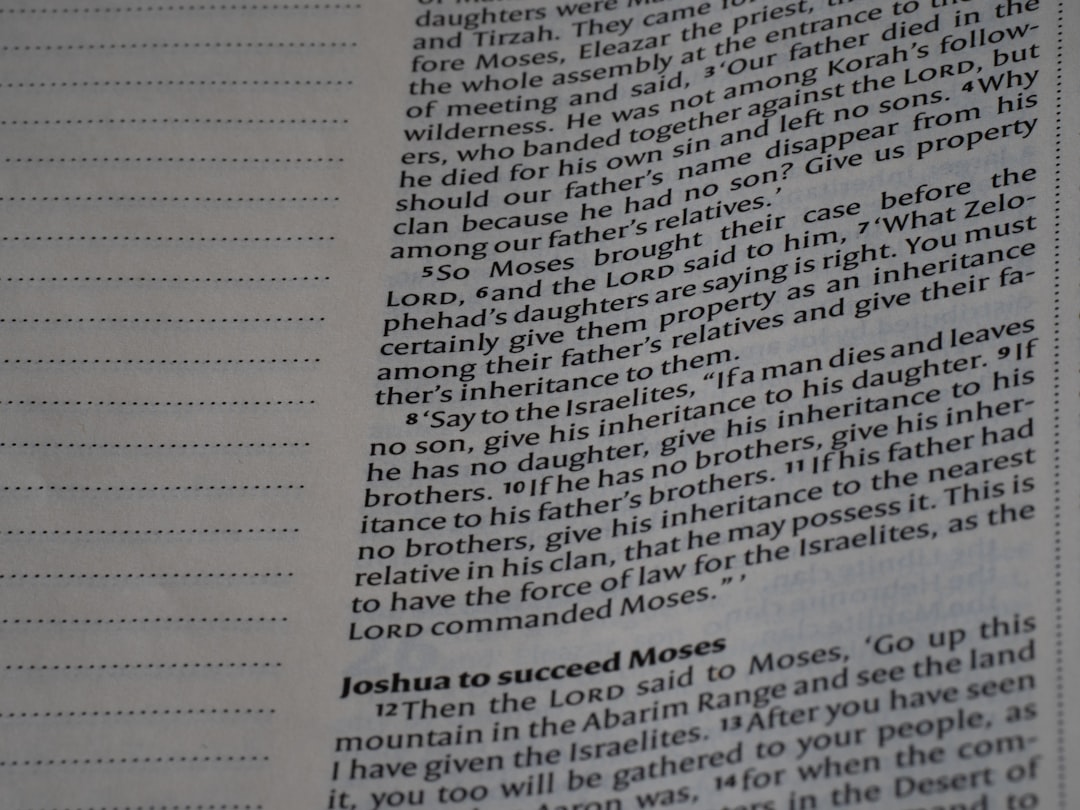 daughters were
and Tirzah. They came
fore Moses, Eleazar the priest,
the whole assembly at the entrance to
of meeting and said, 3‘Our father died in the
wilderness. He was not among Korah’s follow-
ers, who banded together against the LORD, but
he died for his own sin and left no sons. 4Why
should our father’s name disappear from his
clan because he had no son? Give us property
among our father’s relatives.’
5So Moses brought their case before the
LORD, 6and the LORD said to him, 7‘What Zelo-
phehad’s daughters are saying is right. You must
certainly give them property as an inheritance
among their father’s relatives and give their fa-
ther’s inheritance to them.
8‘Say to the Israelites, “If a man dies and leaves
no son, give his inheritance to his daughter. 9If
he has no daughter, give his inheritance to his
brothers. 10If he has no brothers, give his inher-
itance to his father’s brothers. 11If his father had
no brothers, give his inheritance to the nearest
relative in his clan, that he may possess it. This is
to have the force of law for the Israelites, as the
LORD commanded Moses.”’
Joshua to succeed Moses
12Then the LORD said to Moses, ‘Go up this
mountain in the Abarim Range and see the land
I have given the Israelites. 13After you have seen
it, you too will be gathered to your people, as
was, 14for when the com-
in the Desert of